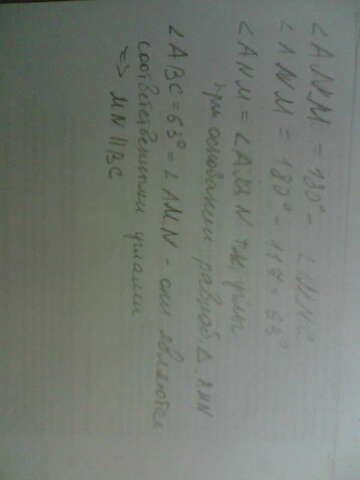 ∠ANM = 180° - ∠MNC
∠ANM = 180° - 117 = 63°
∠ANM = ∠AMN т.к. углы
при основании равноб. Δ AMN
∠ABC = 63° = ∠AMN - они являются
соответственными углами
=> MN || BC